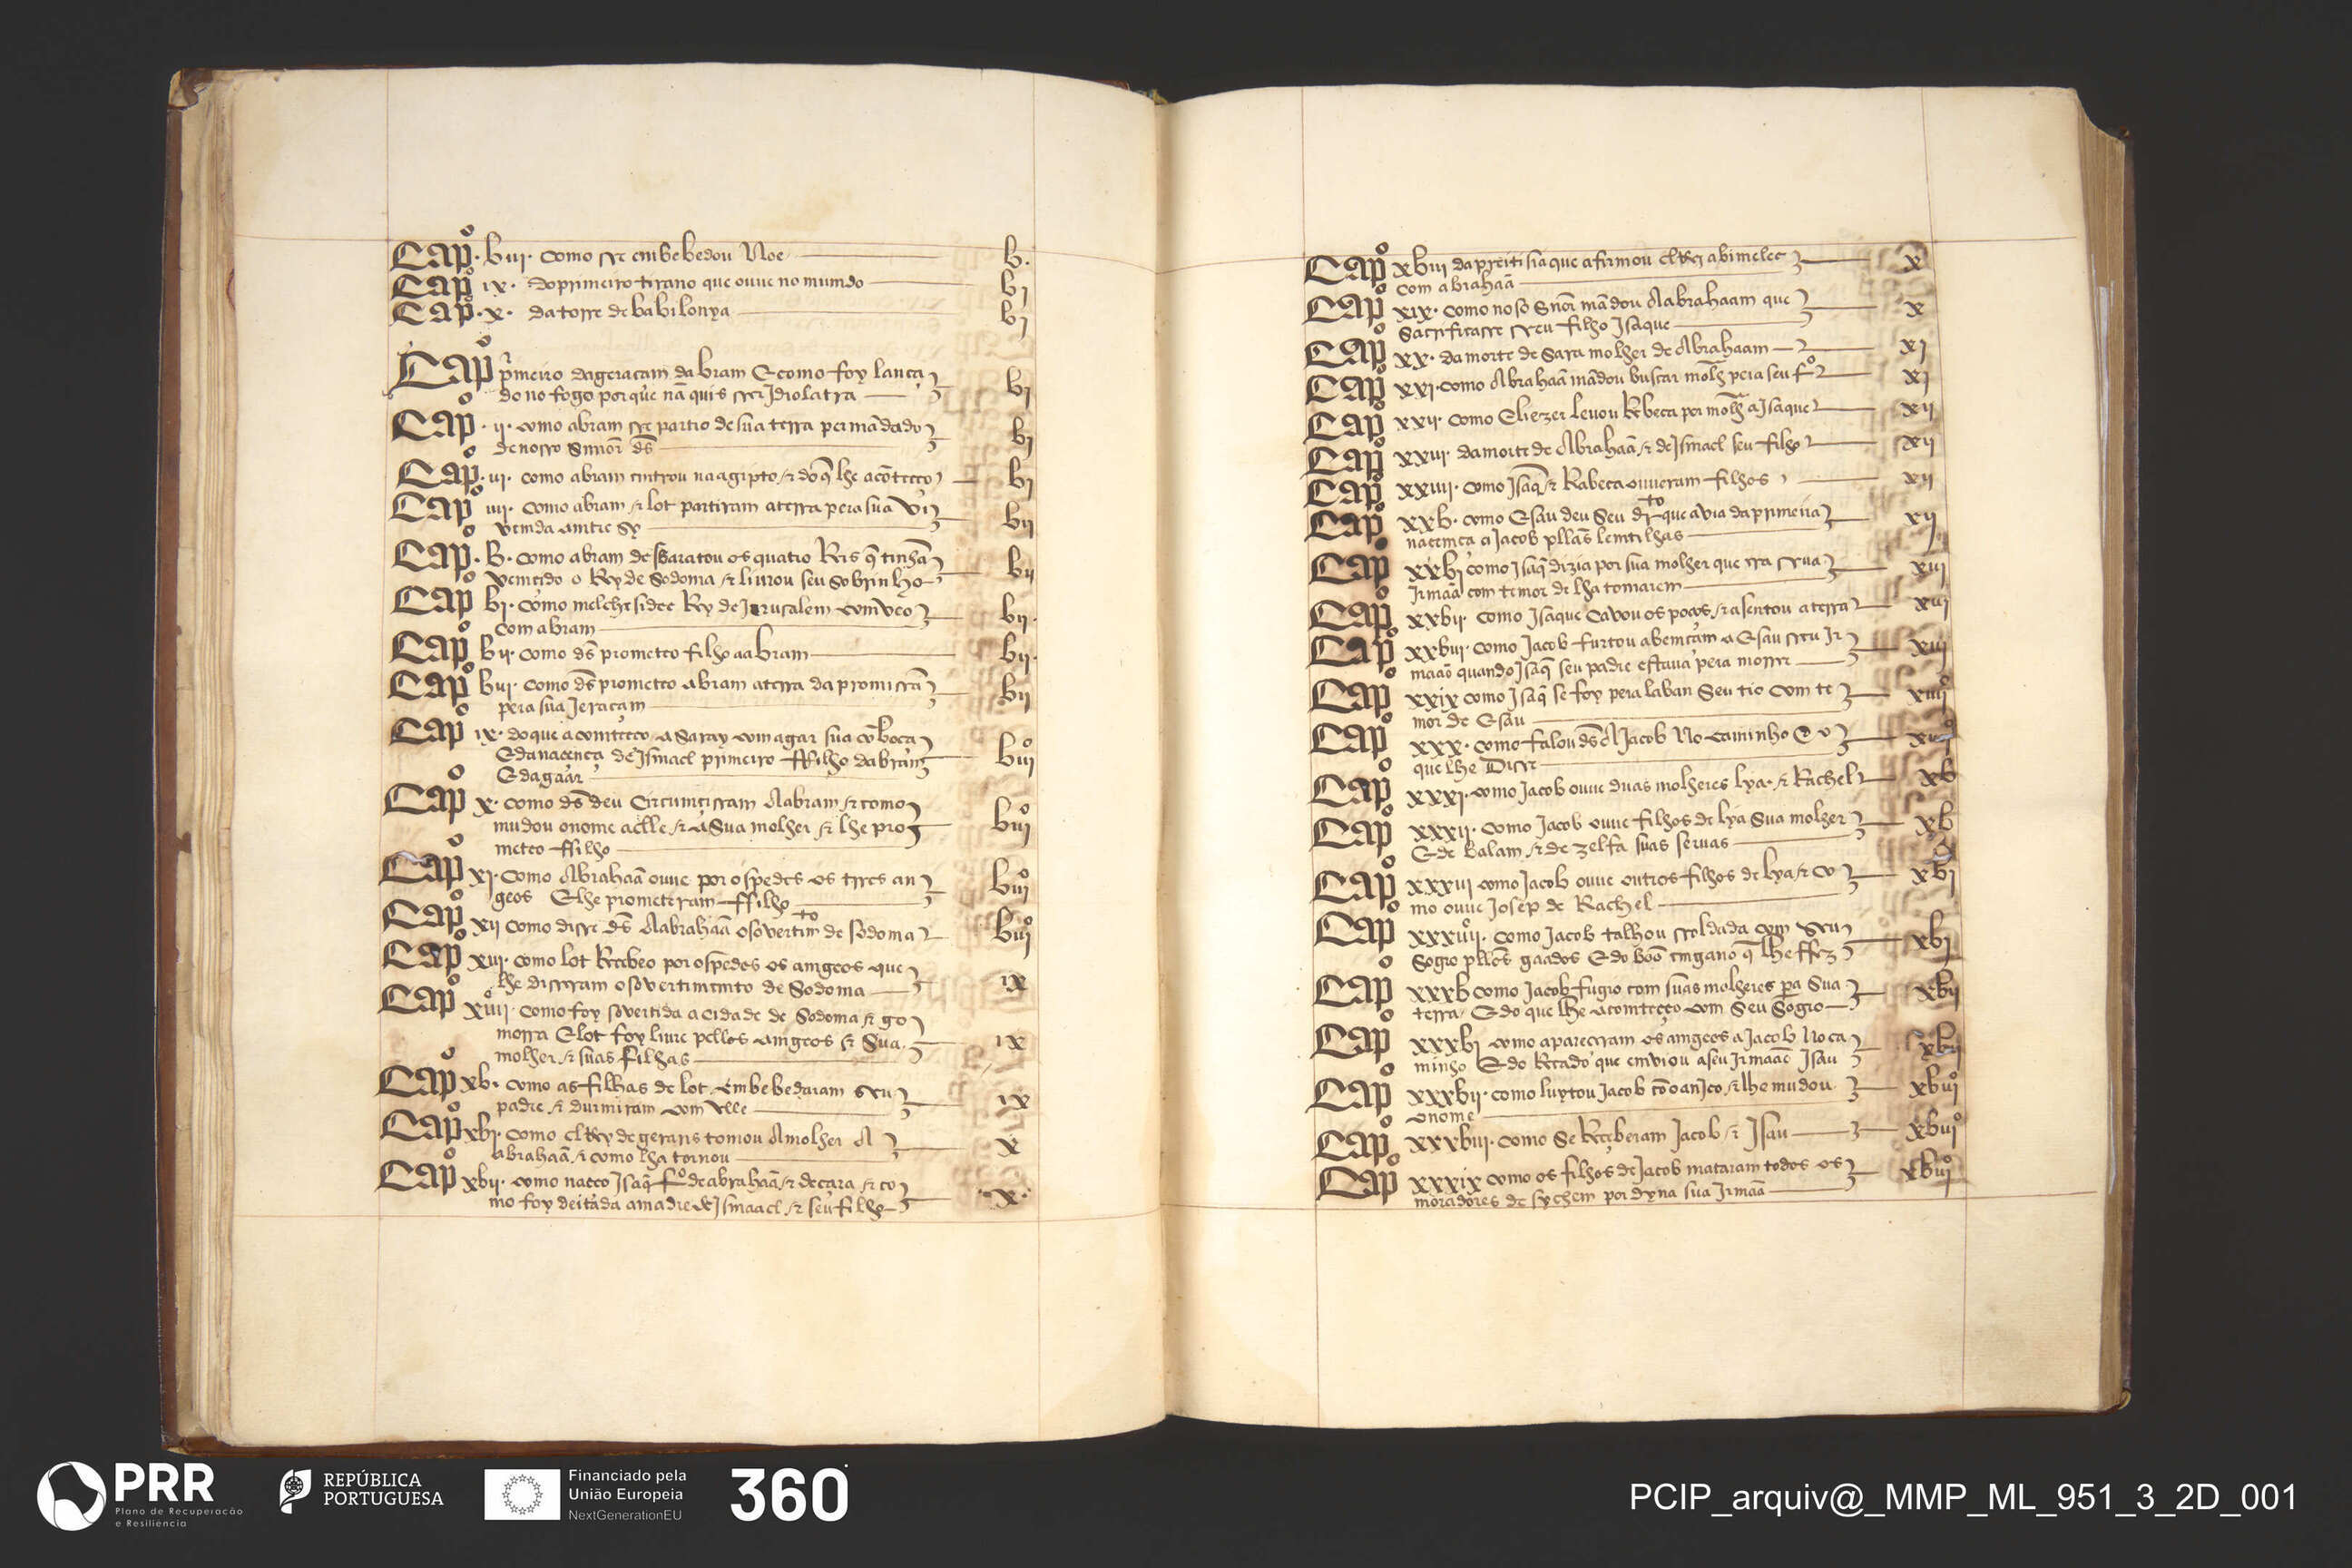 Capº. biii. Como sse embebedou Noe b.
Capº ix. do primeiro tirano que ouue no mundo bj
Capº. x. da torre de babilonya bj
Capº p̃meiro da geracam dabram E como foy lança
do no fogo porque nã quis sser Idiolatra bj
Capº. ii. como abram sse partio de sua terra per mãdado
de nosso Snnõr ds̃ bj
Capº. iii. como abram entrou na agipto & do q̃ lhe acõteceo bj
Capº iiii. Como abram & lot partiram a terra pera sua vi
uemda amtre sy bii
Capº. b. Como abram desbaratou os quatro Reis q̃ tinhã
vemcido o Rey de Sodoma & liurou seu sobrinho bii
Capº bi. Como melchesidec Rey de Jerusalem comueo
com abram bii.
Capº bii. Como ds̃ prometeo filho a abram bii.
Capº biii. Como ds̃ prometeo abram a terra da promissã
pera sua Jeraçam bii
Capº ix. do que acomteceo a Saray com agar sua cõboça
E da nacença de Ismael primeiro ffilho dabram
E dagaar biiiº
Capº x. Como ds̃ deu Circumcissam Aabram & como
mudou o nome a elle & a Sua molher & lhe pro
meteo ffilho biiiº
Capº xi. Como Abrahaã ouue por ospedes os tres an
geos E lhe prometeram ffilho biiiº
Capº xii Como disse ds̃ Aabrahaã o sovertimto de sodoma biiiº
Capº xiii. Como lot Recebeo por ospedes os amgeos que
lhe disseram o sovertimemto de Sodoma ix
Capº xiiiiº. Como foy sovertida a cidade de Sodoma & go
morra E lot foy liure pellos amgeos & Sua
molher & suas filhas ix
Capº xb. Como as filhas de lot embebedaram seu
padre & durmiram com elle ix
Capº xbi. Como el Rey de gerans tomou A molher A
abrahaã & como lha tornou x
Capº xbii. Como naceo Isaq̃ fº de abrahaã & de çara & co
mo foy deitada a madre de Ismaael & seu filho x.
Capº xbiii da preitisia que afirmou el Rej abimelec
Com abrahaã x
Capº xix. Como noso Snõr mãdou Aabrahaam que
Sacrificasse sseu filho Isaque x
Capº xx. da morte de Sara molher de Abrahaam xi
Capº xxi. Como Abrahaã mãdou buscar molh̃ pera seu fº xi
Capº xxii. Como Eliezer leuou Rebeca por molh̃ a Isaque xii
Capº xxiii. da morte de Abrahaã & de Ismael seu filho xii
Capº xxiiii. Como Isaq̃ & Rabeca ouueram filhos xii
Capº xxb. Como Esau deu Seu drto que avia da primeira
nacemca a Jacob pllas lemtilhas xii
Capº xxbi como Isaq̃ dizia por sua molher que era ssua
Irmãa com temor de lha tomarem xiii
Capº xxbii. Como Isaque Cavou os poços & asentou a terra xiii
Capº xxbiii. Como Jacob furtou a bemçam a Esau sseu Ir
maão quando Isaq̃ seu padre estaua pera morrer xiii
Capº xxix como Isaq̃ se foy pera laban Seu tio Com te
mor de Esau xiiiiº
Capº xxx. Como falou ds̃ A Jacob No caminho E o
que lhe Disse xiiiiº
Capº xxxi. como Jacob ouue duas molheres lya. & Rachel xb
Capº xxxii. Como Jacob ouue filhos de lya Sua molher
E de Balam & de zelfa suas seruas xb
Capº xxxiii como Jacob ouue outros filhos de lya & Co
mo ouue Josep de Rachel xbi
Capº xxxiiiiº. Como Jacob talhou ssoldada com sseu
Sogro pllos gaados E do boõ emgano q̃ lhe ffez xbi
Capº xxxb como Jacob fugio com suas molheres p̃a Sua
terra E do que lhe acomteceo com Seu Sogro xbii
Capº xxxbi como apareceram os amgeos a Jacob No ca
minho E do Recado que emviou a seu Irmaão Isau xbii
Capº xxxbii. como luytou Jacob cõ o anJeo & lhe mudou
o nome xbiiiº
Capº xxxbiii. Como Se Receberam Jacob & Isau xbiiiº
Capº xxxix como os filhos de Jacob mataram todos os
moradores de sychem por dyna sua Irmãa xbiiiº
PRR
Plano de Recuperação
e Resiliência
REPÚBLICA
PORTUGUESA
Financiado pela
União Europeia
NextGenerationEU
360
PCIP_arquiv@_MMP_ML_951_3_2D_001